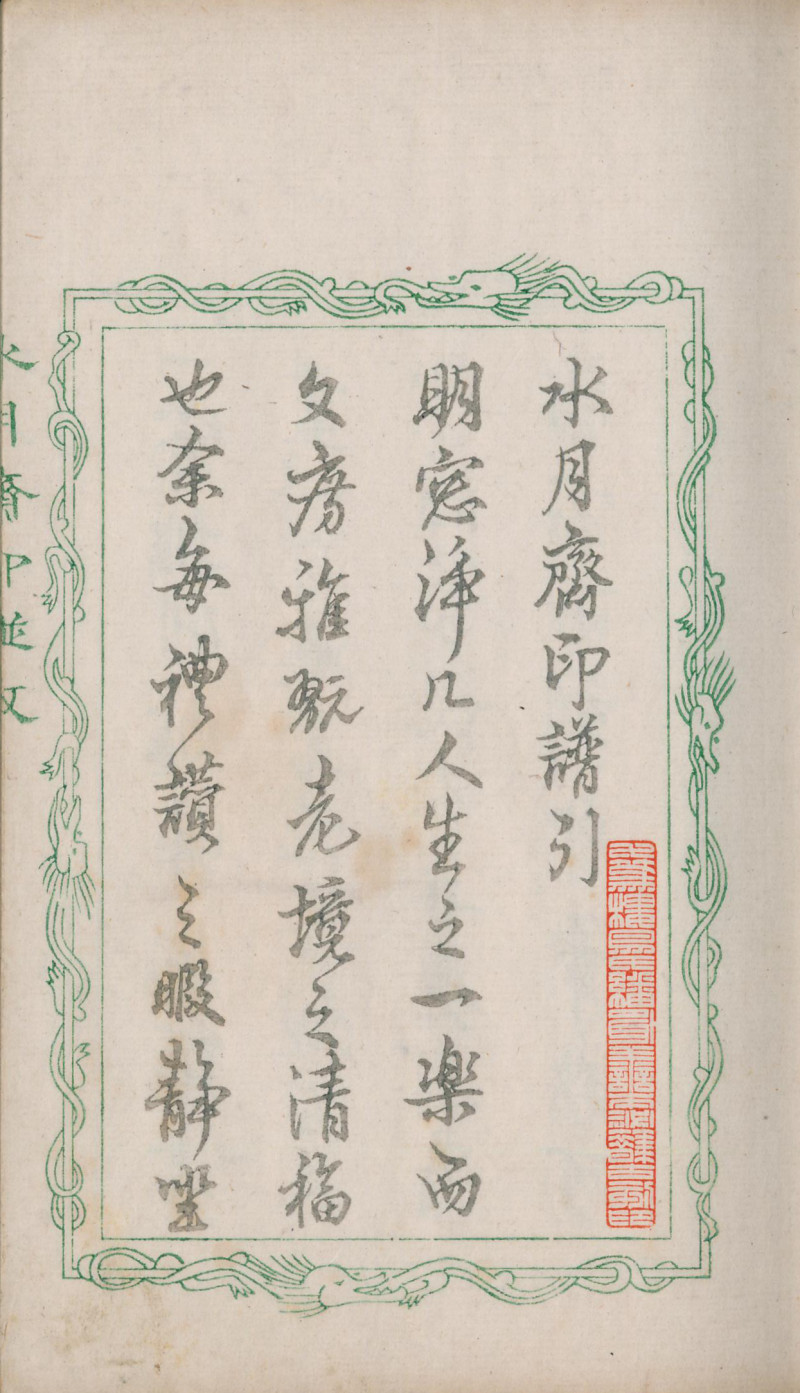 水月齋印譜引
明窓淨几人生之一楽而
文房雅翫老境之清福
也余每禮讚之暇靜坐
水月齋印譜文